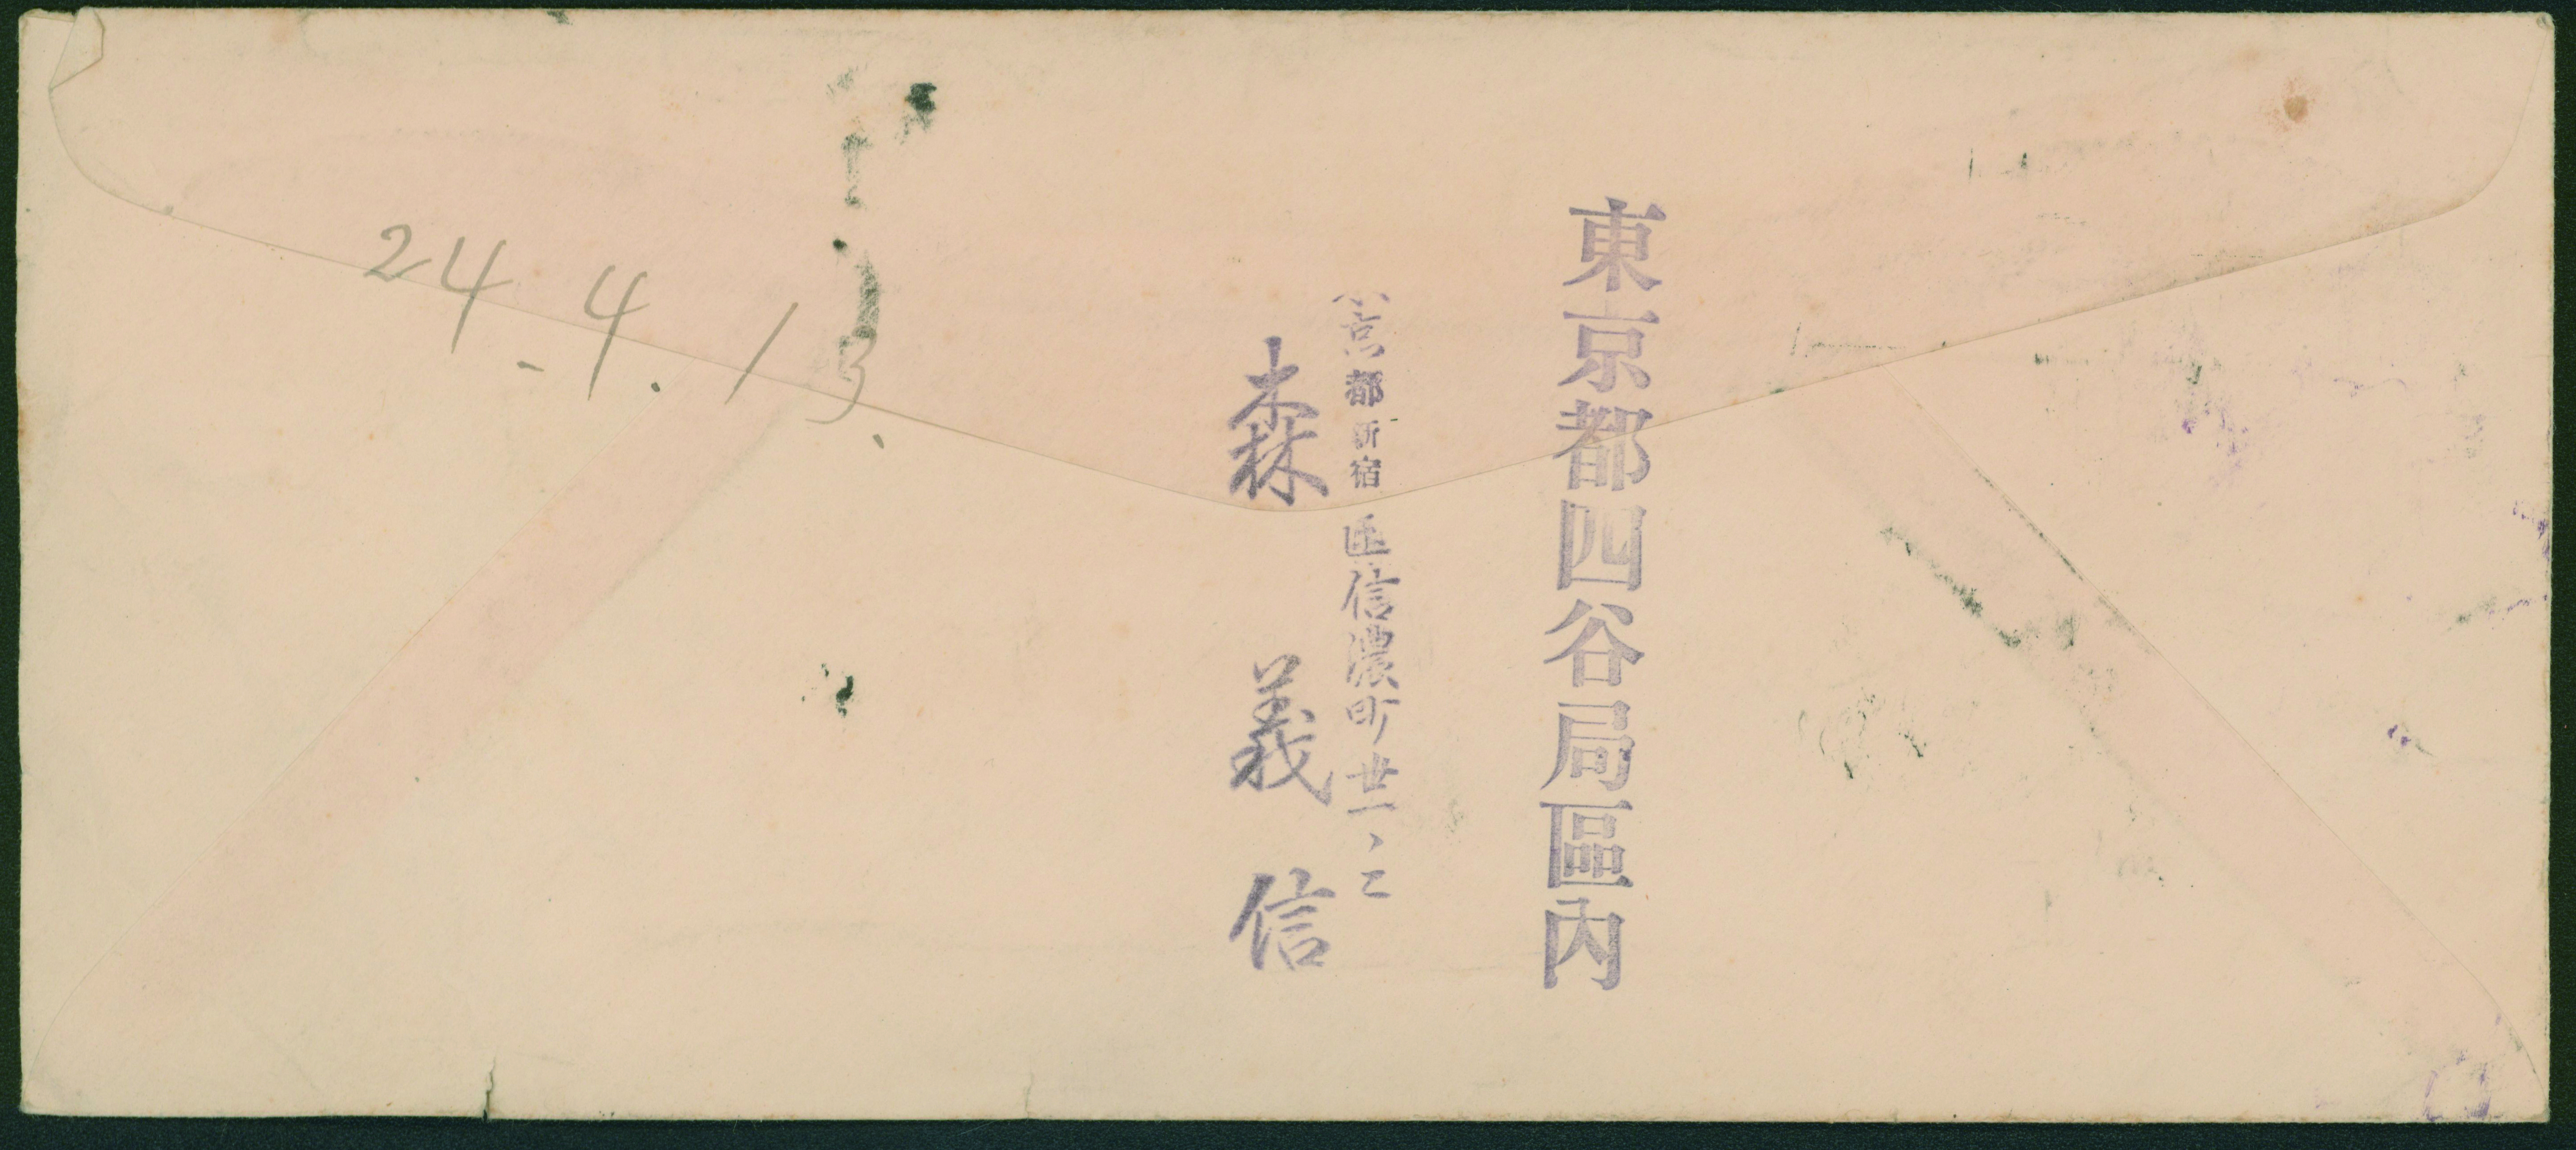 東京都四谷局區内
京都新宿区信濃町卅一、二
森義信
24.4.13.